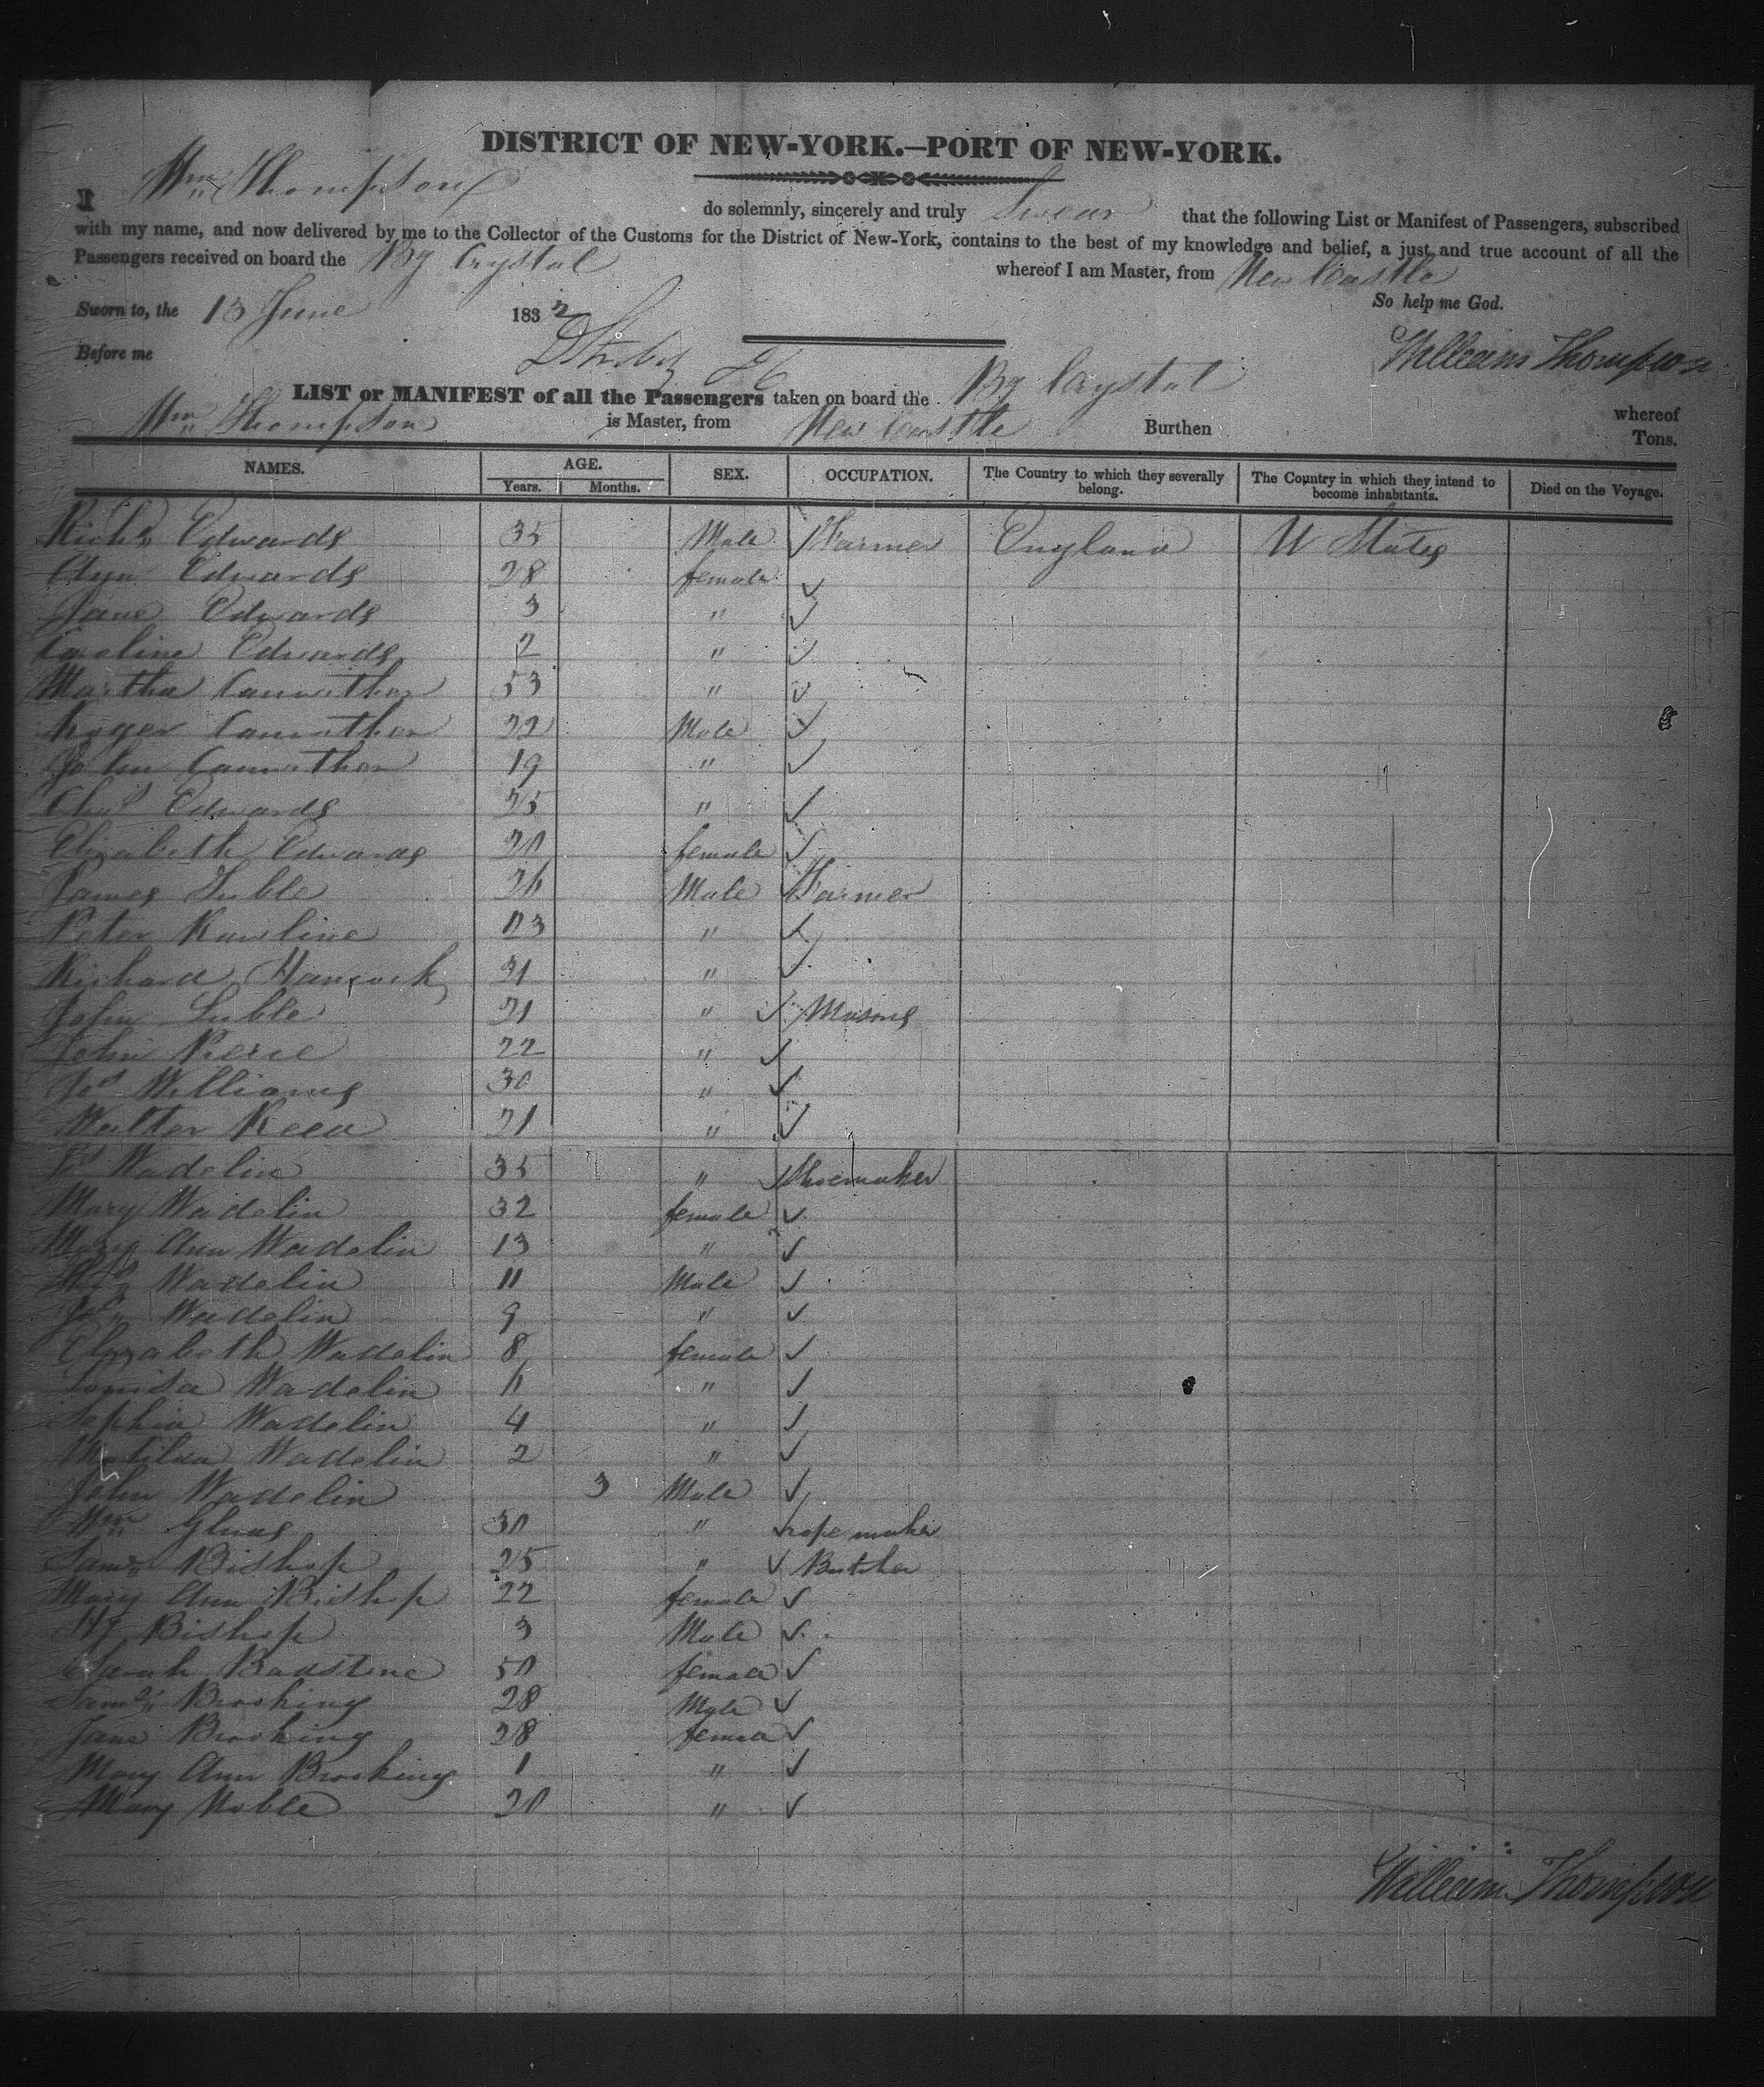 DISTRICT OF NEW-YORK.—PORT OF NEW-YORK.
I Wm Thompson do solemnly, sincerely and truly Swear that the following List or Manifest of Passengers, subscribed
with my name, and now delivered by me to the Collector of the Customs for the District of New-York, contains to the best of my knowledge and belief, a just and true account of all the
Passengers received on board the Bg Crystal whereof I am Master, from New Castle
Sworn to, the 13 June 1832 So help me God.
Before me William Thompson
LIST or MANIFEST of all the Passengers taken on board the Bg Crystal whereof
Wm Thompson is Master, from New Castle Burthen Tons.
NAMES. AGE. Years. Months. SEX. OCCUPATION. The Country to which they severally belong. The Country in which they intend to become inhabitants. Died on the Voyage.
Richd Edwards 35 Male Farmer England U States
Ann Edwards 28 female
Jane Edwards 3 "
Caroline Edwards 2 "
Martha 53 "
Roger 22 Male
John 19 "
Chas Edwards 25 "
Elizabeth Edwards 20 female
James 26 Male Farmer
Peter Rawline 23 "
Richard Hancock 31 "
John 21 " Masons
John Pierce 22 "
Jos Williams 30 "
Walter Reed 21 "
Wadelin 35 " Shoemaker
Mary Wadelin 32 female
Mary Ann Wadelin 13 "
Wadelin 11 Male
Wadelin 9 "
Elizabeth Wadelin 8 female
Louisa Wadelin 6 "
Sophia Wadelin 4 "
Matilda Wadelin 2 "
John Wadelin 3 Male
Wm 30 " rope maker
Saml Bishop 25 " Butcher
Mary Ann Bishop 22 female
Hy Bishop 3 Male
Sarah 50 female
Saml Brooking 28 Male
Jane Brooking 28 female
Mary Ann Brooking 1 "
Mary Noble 20 "
William Thompson